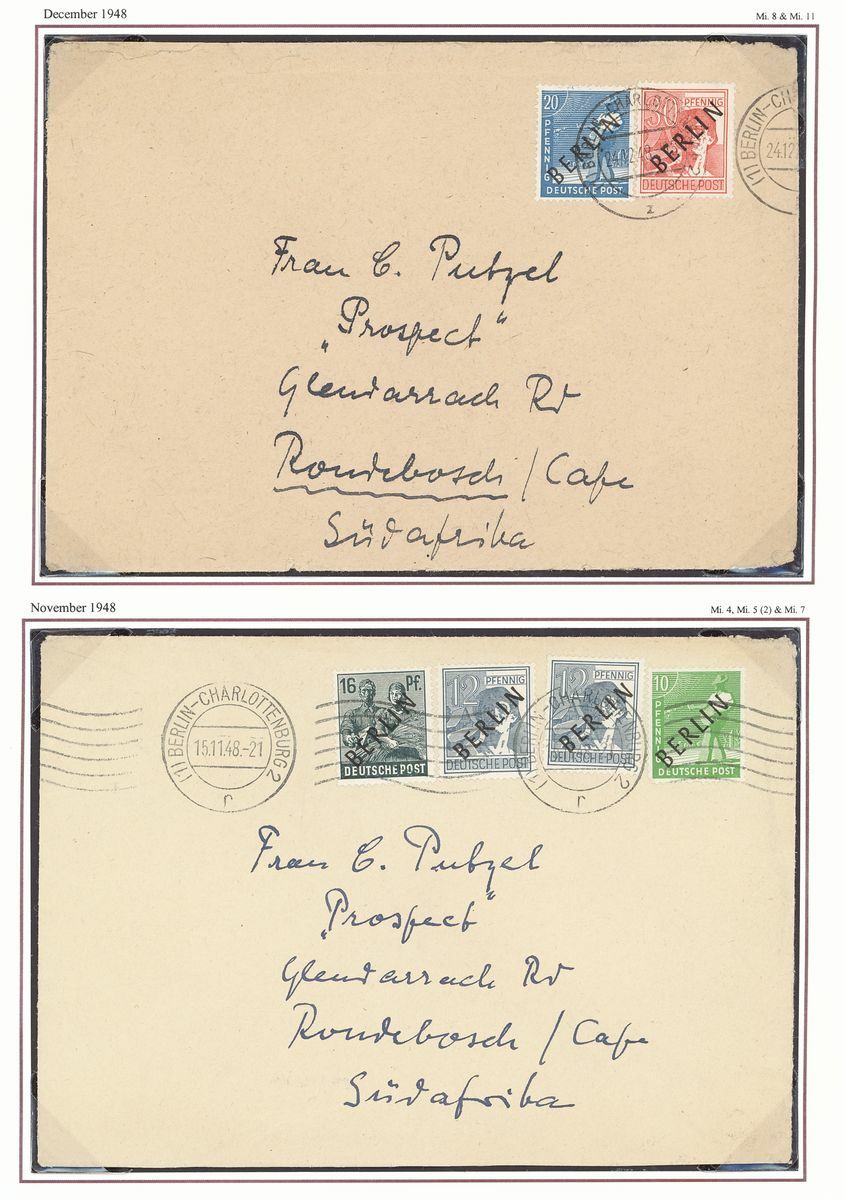 December 1948
Mi. 8 & Mi. 11
20 PFENNIG
BERLIN
DEUTSCHE POST
30 PFENNIG
BERLIN
DEUTSCHE POST
24.12.48
z
(1) BERLIN-CH
24.12
Frau C. Putzel
„Prospect“
Glendarrach Rd
Rondebosch / Cape
Südafrika
November 1948
Mi. 4, Mi. 5 (2) & Mi. 7
(1) BERLIN-CHARLOTTENBURG 2
15.11.48.-21
r
16 Pf.
BERLIN
DEUTSCHE POST
12 PFENNIG
BERLIN
DEUTSCHE POST
12 PFENNIG
BERLIN
DEUTSCHE POST
r
10 PFENNIG
BERLIN
DEUTSCHE POST
Frau C. Putzel
„Prospect“
Glendarrach Rd
Rondebosch / Cape
Südafrika